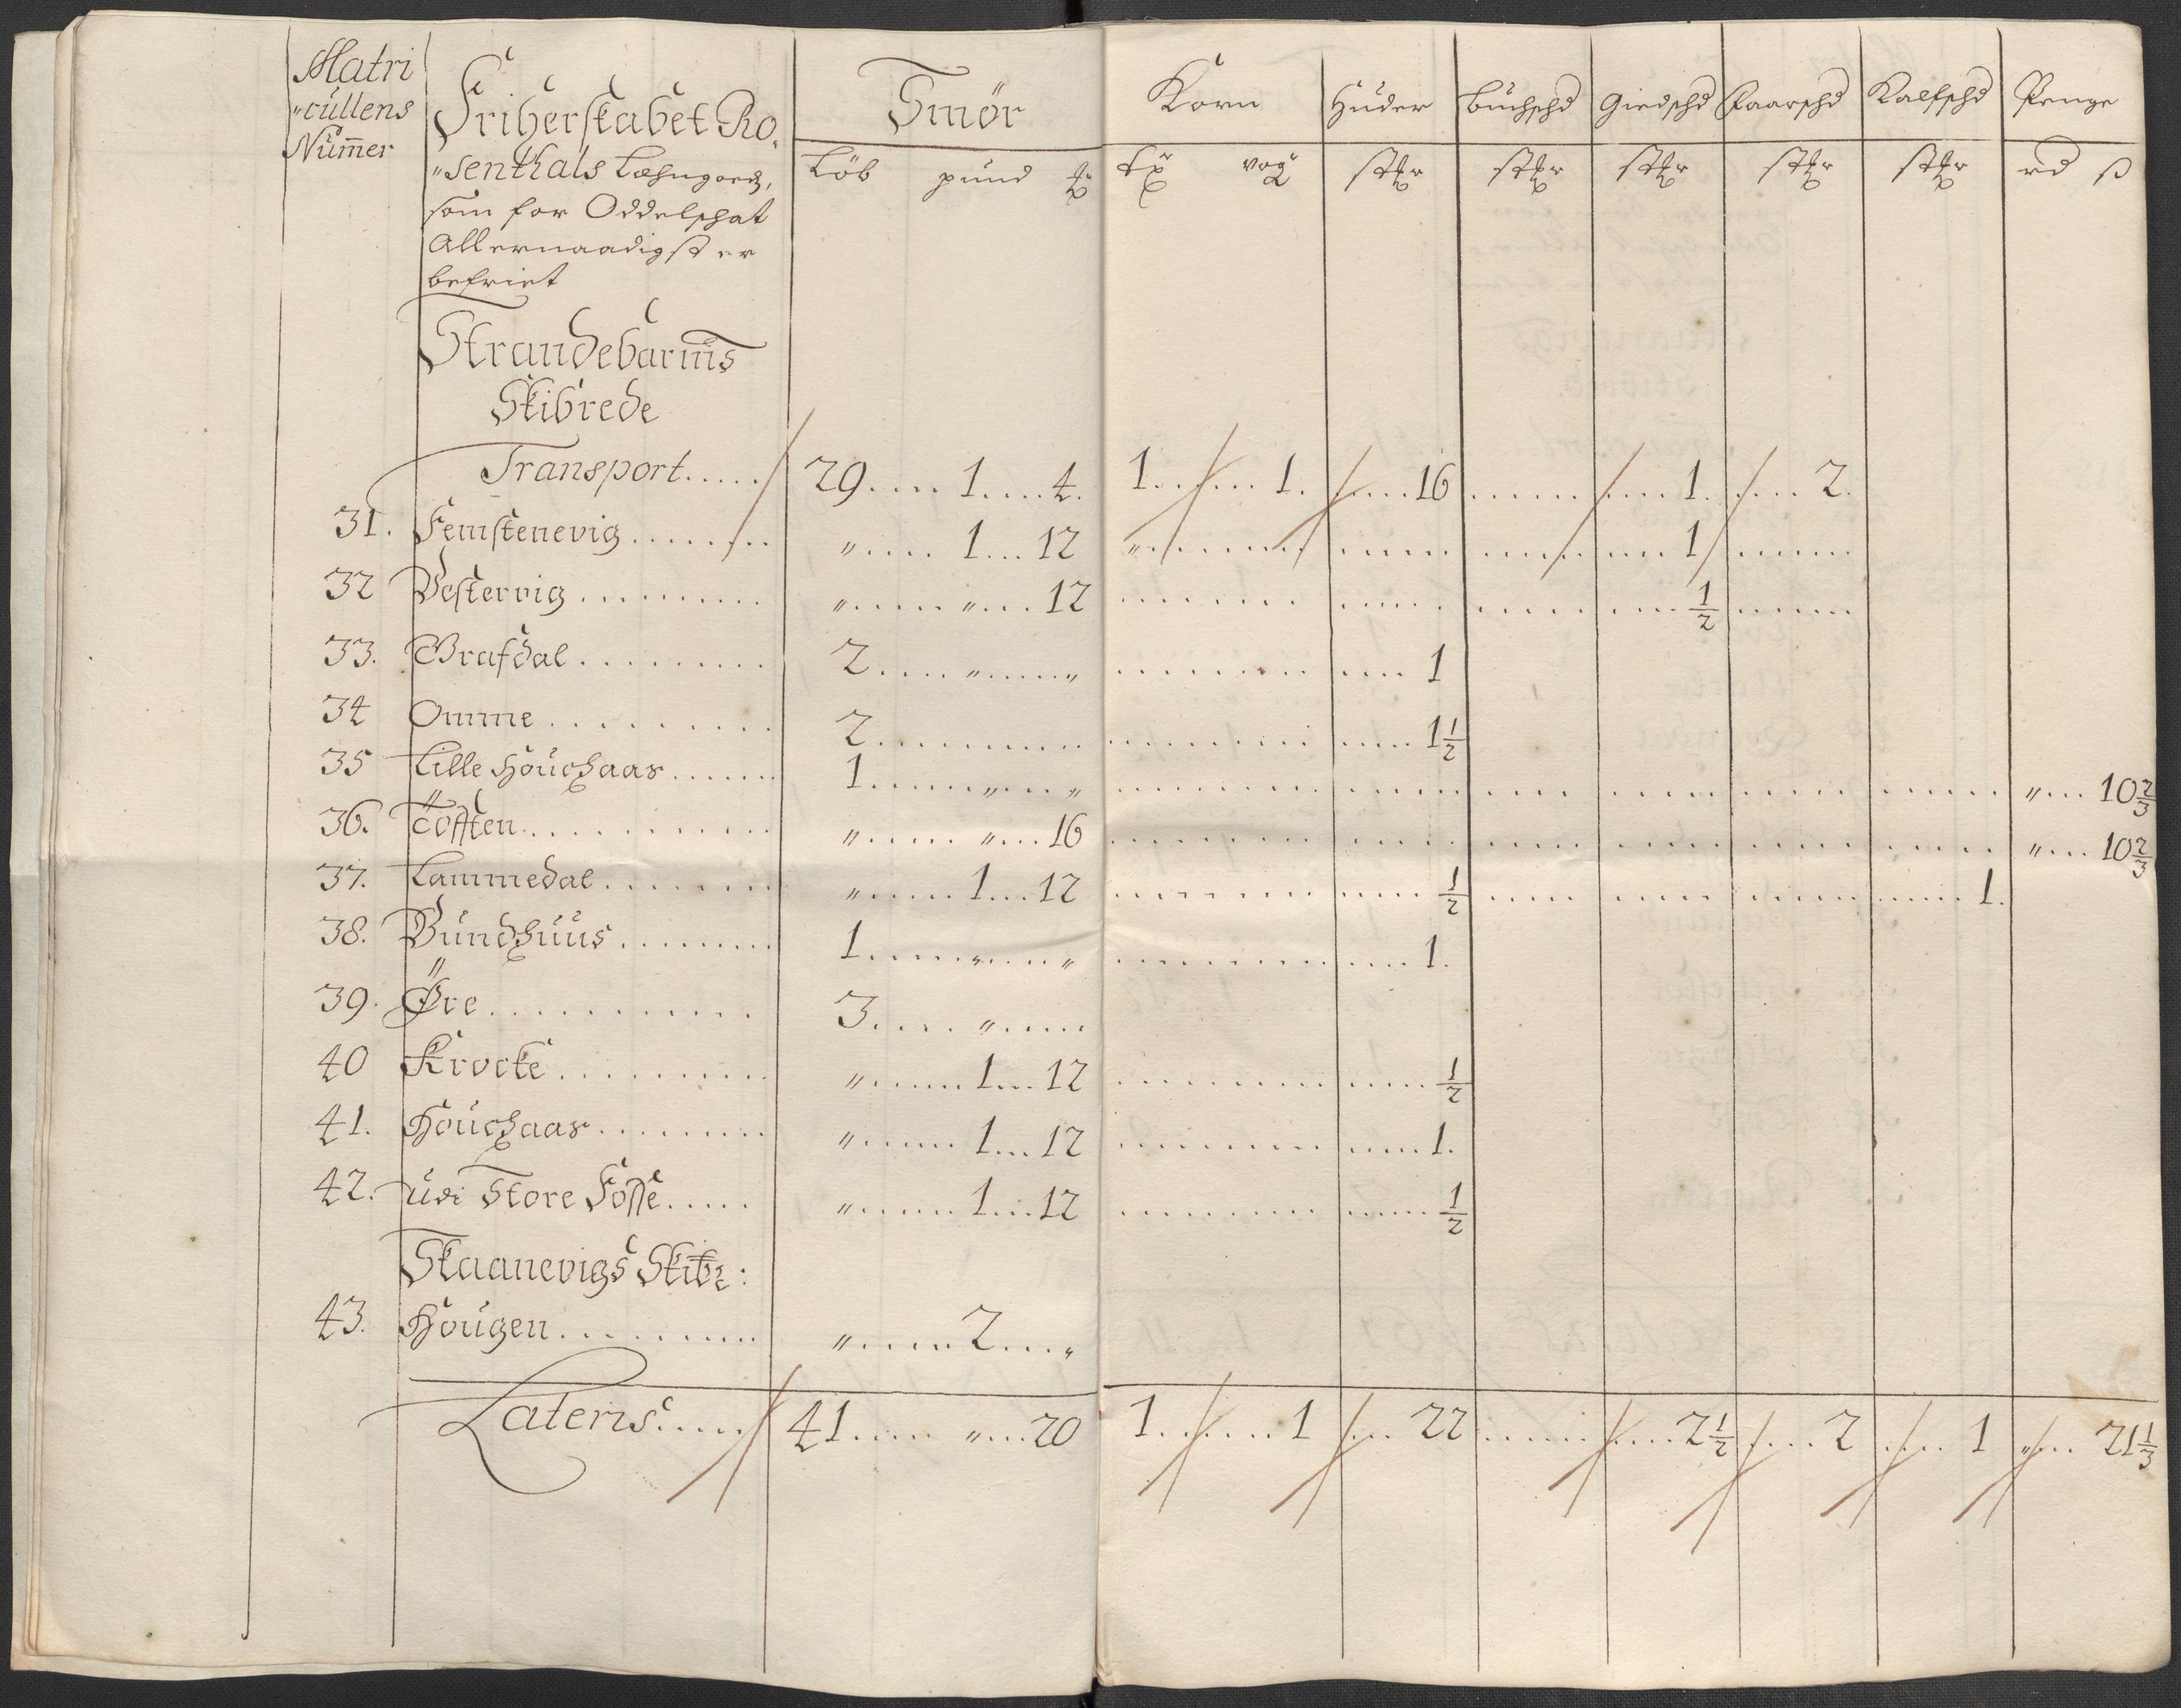 Matri
"cullens
Nummer
Friherskabet Ro,
"senthals Læhngods,
som for Oddelschat
Allernaadigst er
befriet
Smör Korn Huder Buchschd Giedschd Faarschd Kalfschd Penge
Löb pund rd ß
Strandebarms
Skibrede
Transport..... 29.... 1.... 4. 1...... 1. ....16 ...... ....1. ....2.
31. Femstenevig........ "..... 1... 12 "........ ..... ..... ....1 .....
32 Vestervig......... "..... "... 12 ....... ..... ..... .... 1/2 .....
33. Brafdal......... 2.... "....." ........ .... 1
34 Omme.......... 2.......... ........ ..... 1 1/2
35 Lille Houchaas....... 1......"...." ........ ...... .... ..... ..... ..... "... 10 2/3
36. Töfften........... "..... "...16 ........ ...... ..... ..... ..... ..... "... 10 2/3
37. Lammedal........ "..... 1... 12 ....... .... 1/2 ..... ..... ..... .....1.
38. Bundhuus......... 1......"....." ........ ....1.
39. Øre........... 3.... ".....
40 Krocke.......... "..... 1... 12 ........ ..... 1/2
41. Houchaas......... "..... 1... 12 ........ .....1.
42. udi Store Fosse..... "..... 1... 12 ........ ..... 1/2
Skaanevigs Skibr:
43. Hougen......... "..... 2...."
Lateris..... 41.... "... 20 1...... 1 .... 22 ...... .... 2 1/2 .... 2 .... 1 "... 21 1/3